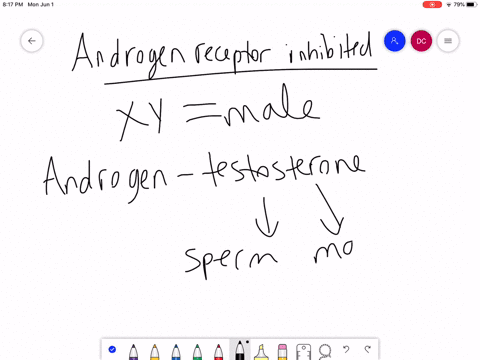 8:17 PM Mon Jun 1
79%
DC
Androgen receptor inhibited
XY = male
Androgen - testosterone
sperm mo